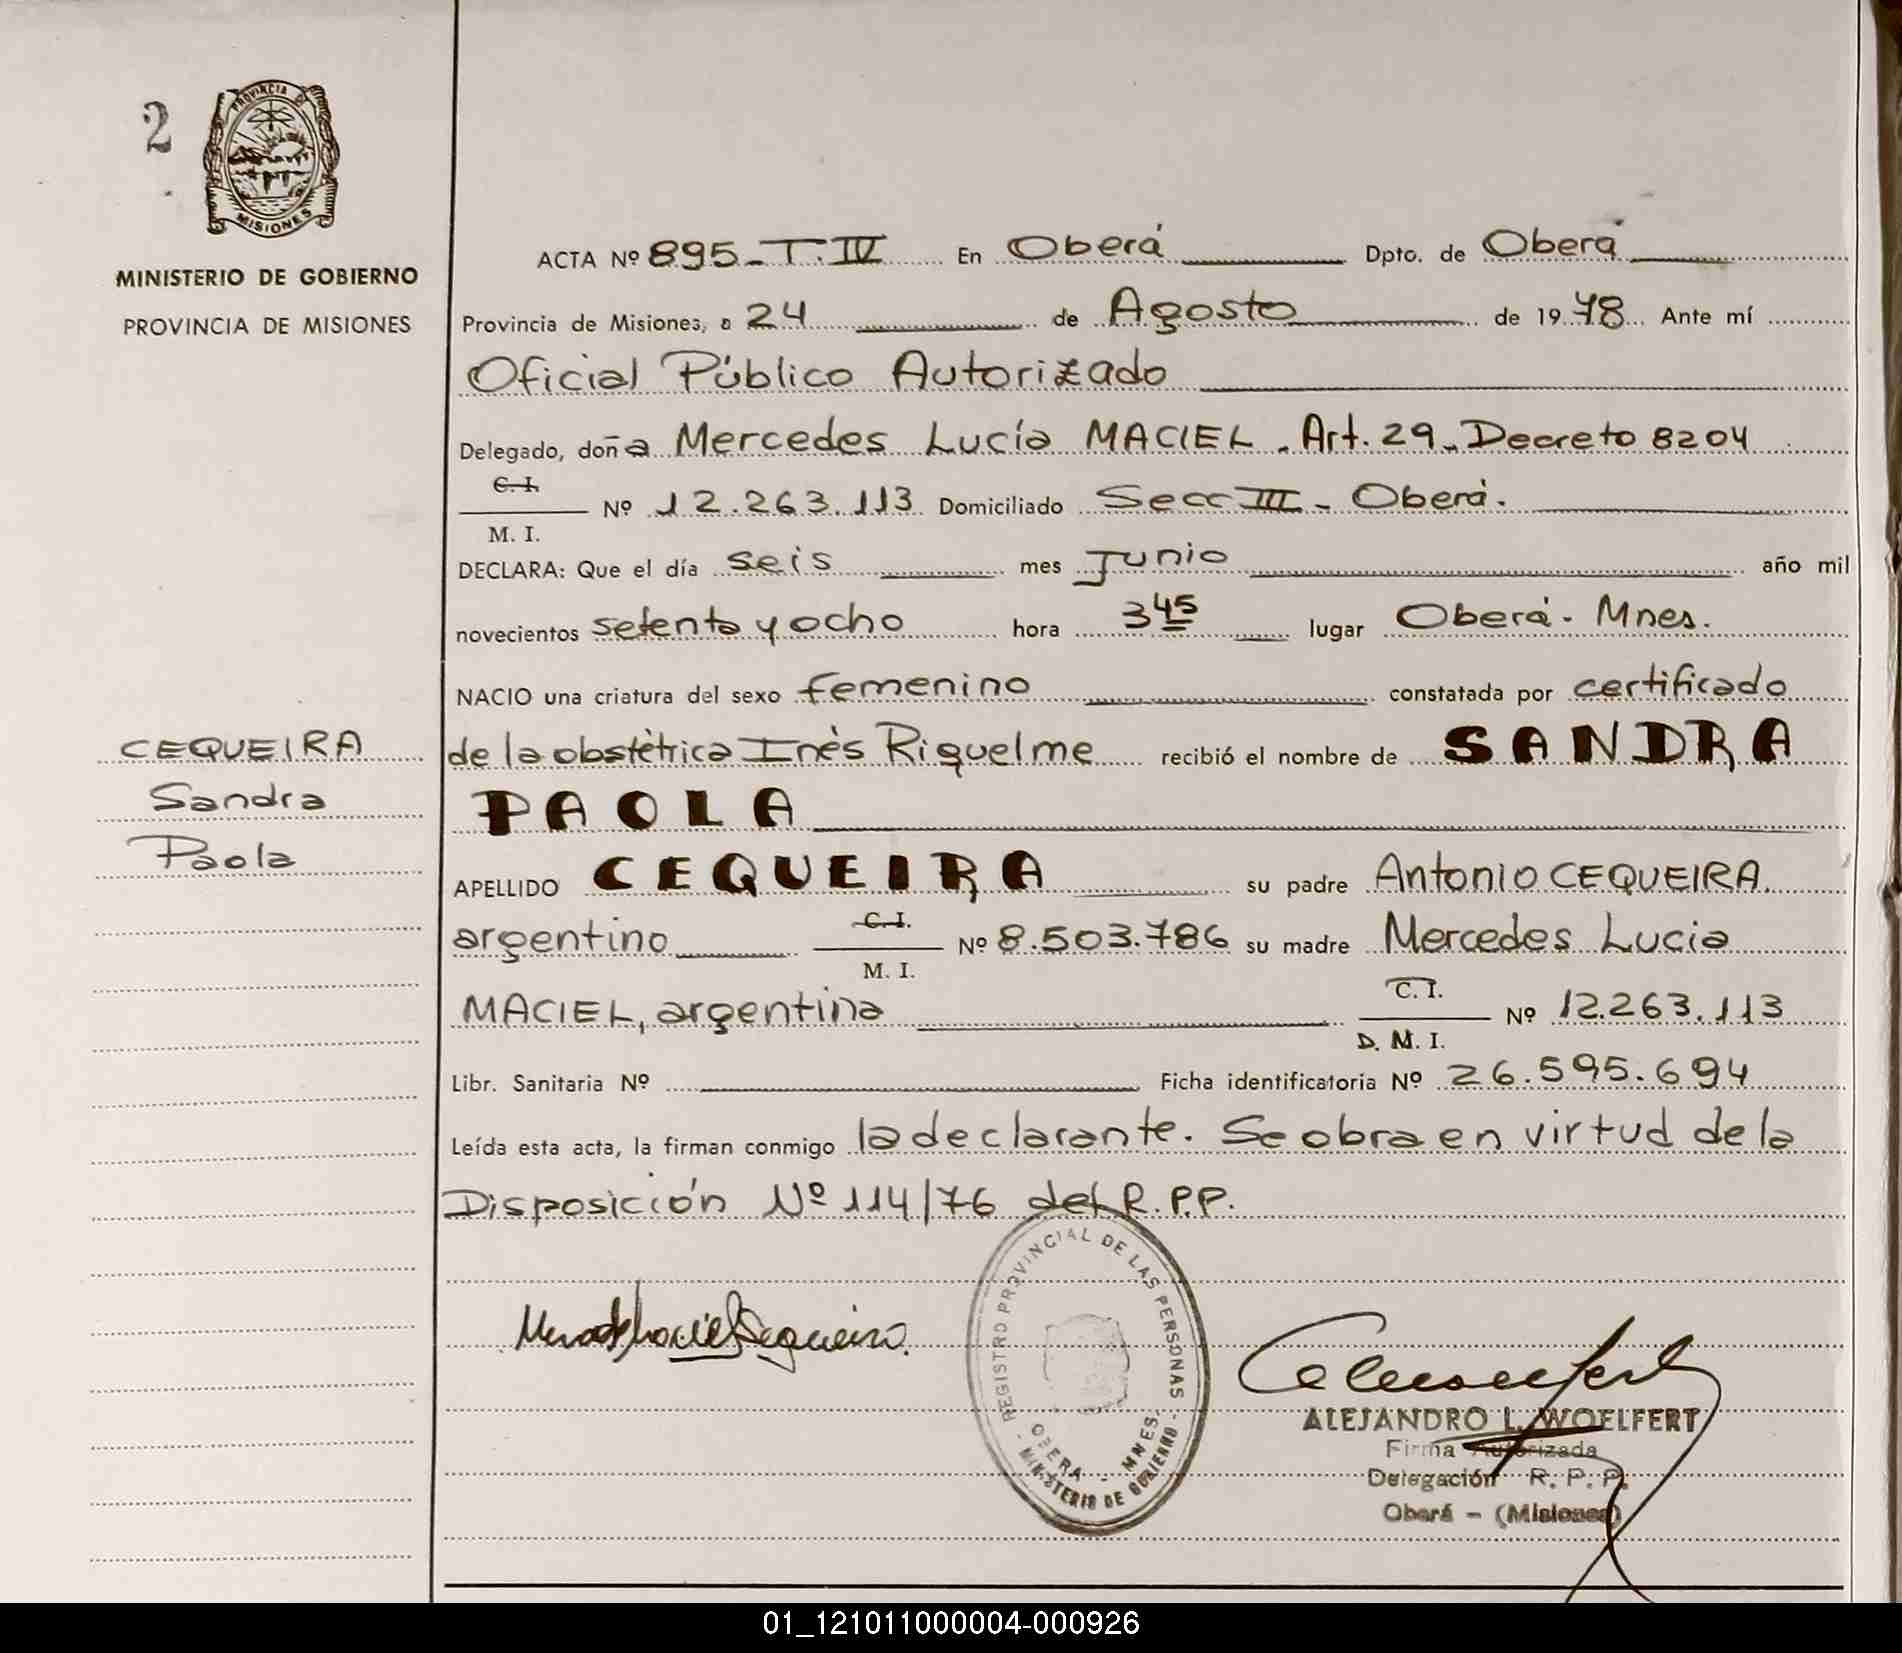 2
PROVINCIA DE
MISIONES
MINISTERIO DE GOBIERNO
PROVINCIA DE MISIONES
ACTA Nº 895 - T. IV En Oberá Dpto. de Oberá
Provincia de Misiones, a 24 de Agosto de 1978 Ante mí
Oficial Público Autorizado
Delegado, doña Mercedes Lucía MACIEL. Art. 29 - Decreto 8204
C. I.
M. I.
Nº 12.263.113 Domiciliado Secc III - Oberá.
DECLARA: Que el día seis mes Junio año mil
novecientos setenta y ocho hora 3 45 lugar Oberá - Mnes.
NACIO una criatura del sexo femenino constatada por certificado
de la obstétrica Inés Riquelme recibió el nombre de SANDRA
PAOLA
CEQUEIRA
Sandra
Paola
APELLIDO CEQUEIRA su padre Antonio CEQUEIRA.
argentino C. I. M. I. Nº 8.503.786 su madre Mercedes Lucia
MACIEL, argentina C. I. D. M. I. Nº 12.263.113
Libr. Sanitaria Nº Ficha identificatoria Nº 26.595.694
Leída esta acta, la firman conmigo la declarante. Se obra en virtud de la
Disposición Nº 114/76 del R.P.P.
REGISTRO PROVINCIAL DE LAS PERSONAS
OBERA - MNES.
- MINISTERIO DE GOBIERNO -
ALEJANDRO L. WOELFERT
Firma Autorizada
Delegación R. P. P.
Oberá - (Misiones)
01_121011000004-000926